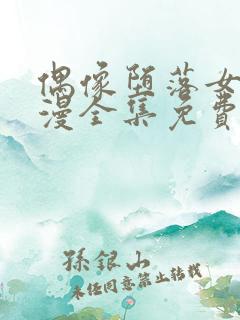 偶像堕落女
漫全集免费
孫銀山
未经同意禁止转载